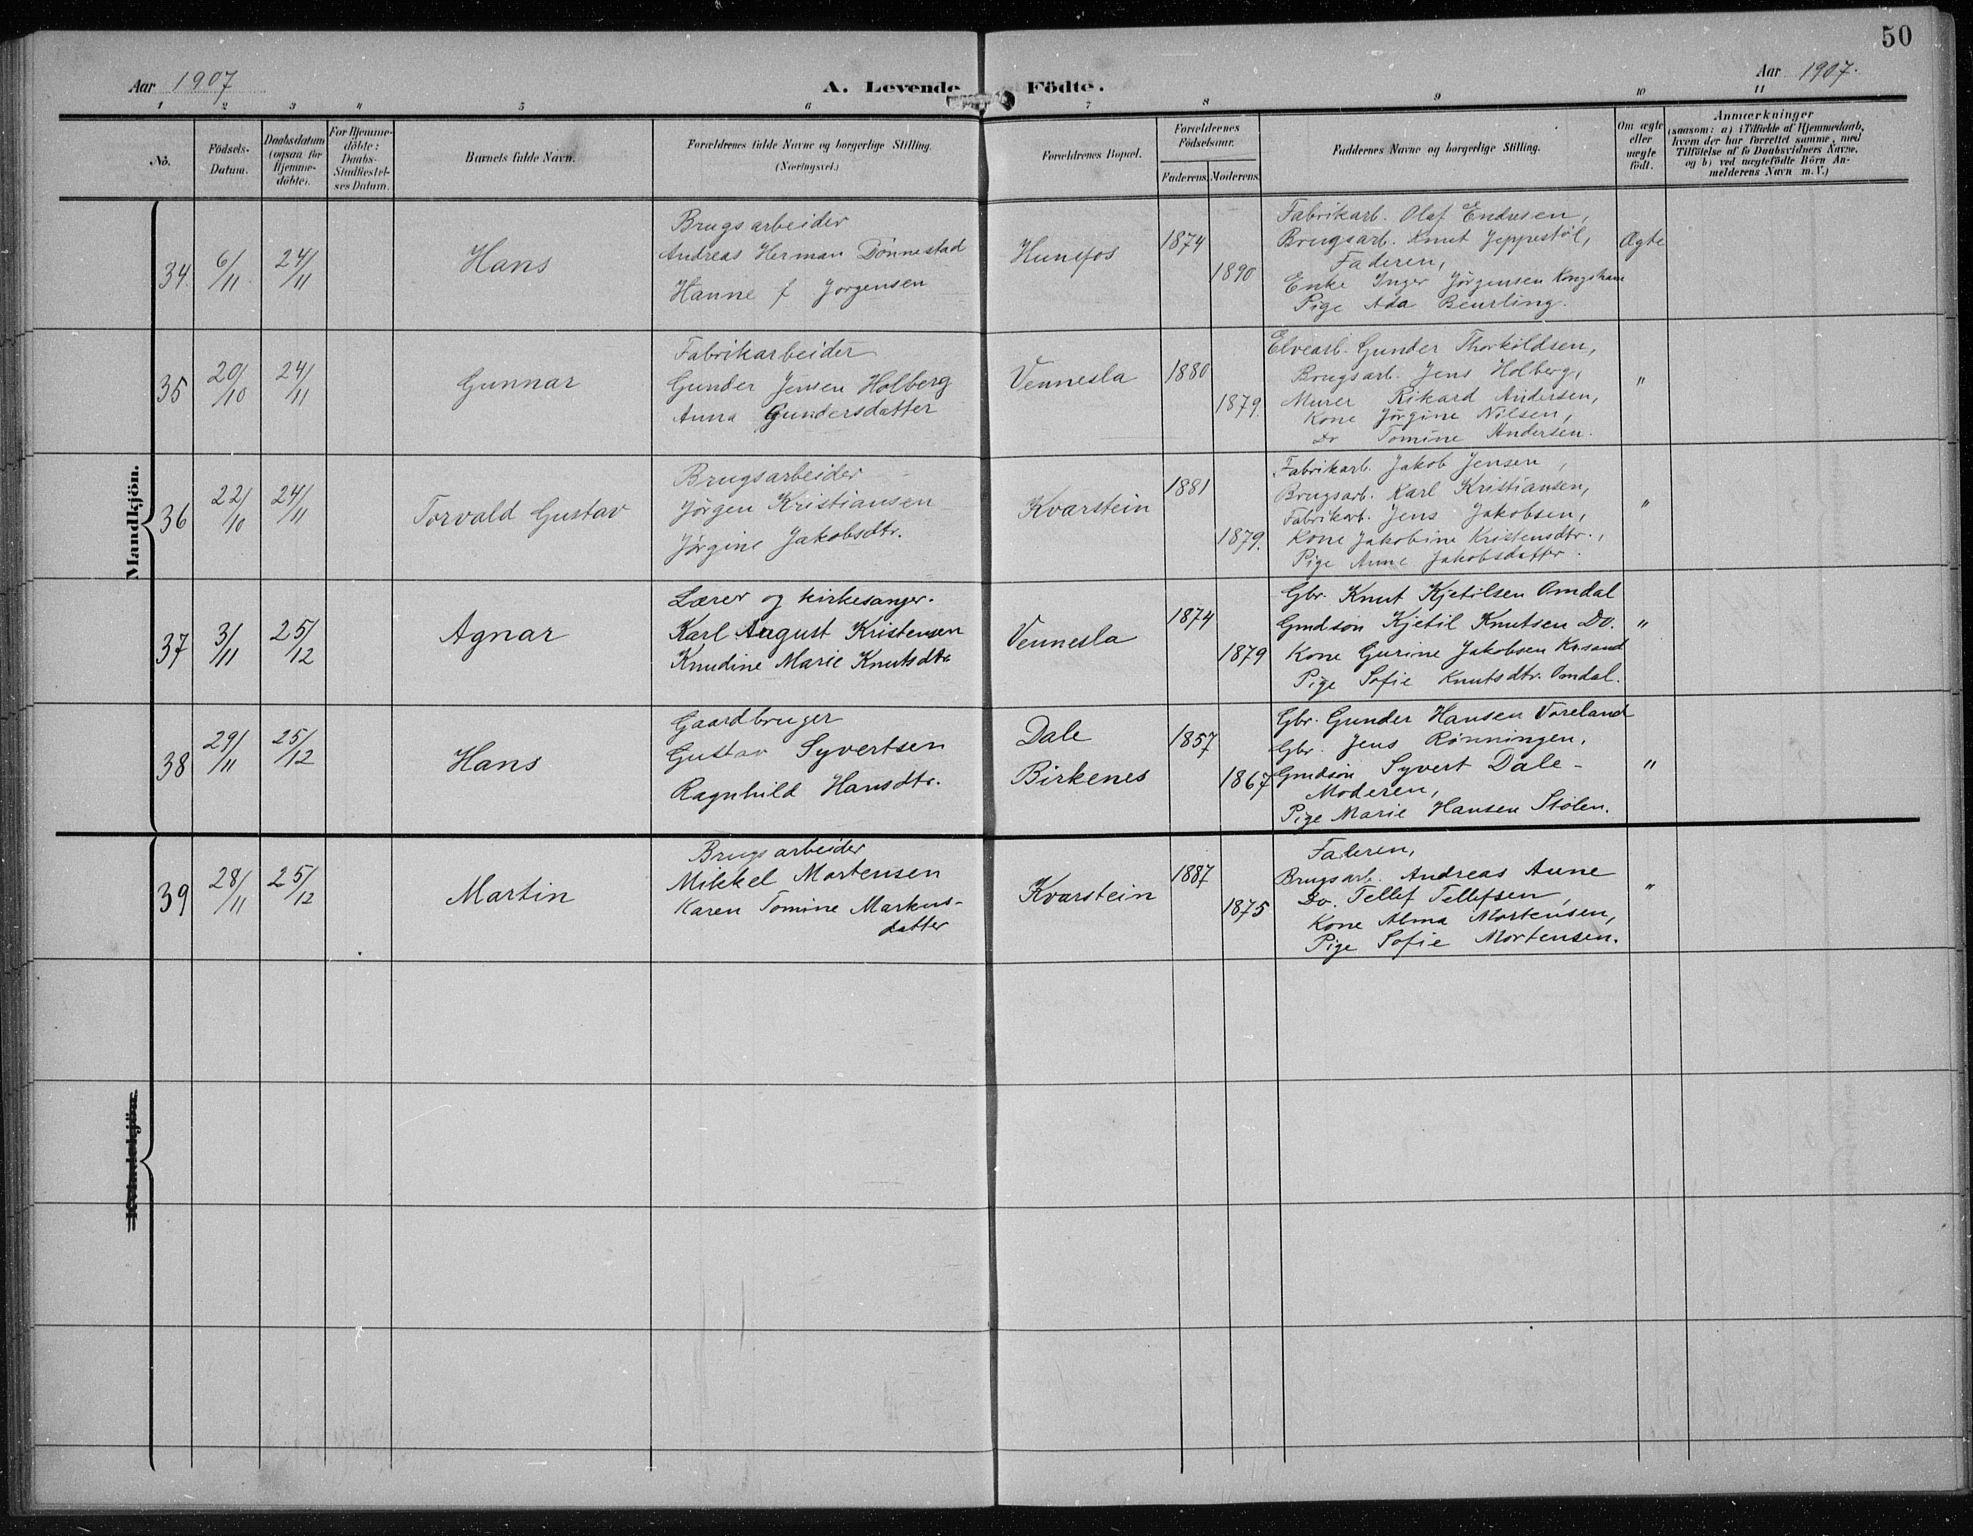 50
Aar 1907
A. Levende Födte.
Aar 1907.
1 2 3 " 5 6 7 8 9 10 11
No.
Födsels-Datum.
Daabsdatum (ogsaa for Hjemme-döbte).
For Hjemme-döbte: Daabs-Stadfæstel-ses Datum.
Barnets fulde Navn.
Forældrenes fulde Navne og borgerlige Stilling.
(Næringsvei.)
Forældrenes Bopæl.
Forældrenes Födselsaar.
Faderens. Moderens.
Faddernes Navne og borgerlige Stilling.
Om ægte eller uægte födt.
Anmærkninger
(saasom: a) i Tilfælde af Hjemmedaab, hvem der har forrettet samme, med Tilföielse af to Daabsvidners Navne, og b) ved uægtefödte Börn An-melderens Navn m. V.)
Mandkjön.
34. 6/11 24/11 Hans
Brugsarbeider
Andreas Herman Dønnestad
Hanne f Jørgensen
Hunsfos 1874 1890
Fabrikarb. Olaf Endresen,
Brugsarb. Knut Jeppestøl,
Faderen,
Enke Inger Jørgensen Kongshavn
Pige Ada Beurling.
Ægte
35 20/10 24/11 Gunnar
Fabrikarbeider
Gunder Jensen Holberg
Anna Gundersdatter
Vennesla 1880 1879.
Elvearb. Gunder Thorkildsen,
Brugsarb. Jens Holberg,
Murer Rikard Andersen,
Kone Jørgine Nilsen,
Do Tomine Andersen.
"
36 22/10 24/11 Torvald Gustav
Brugsarbeider
Jørgen Kristiansen
Jørgine Jakobsdtr.
Kvarstein 1881 1879.
Fabrikarb. Jakob Jensen,
Brugsarb. Karl Kristiansen,
Fabrikarb. Jens Jakobsen,
Kone Jakobine Kristensdtr.,
Pige Anne Jakobsdatter.
"
37 3/11 25/12 Agnar
Lærer og kirkesanger.
Karl August Kristensen
Knudine Marie Knutsdtr
Vennesla 1874 1879
Gbr. Knut Kjetilsen Omdal
Gmdsøn Kjetil Knutsen Do.
Kone Gurine Jakobsen Krsand
Pige Sofie Knutsdtr. Omdal.
"
38 29/11 25/12 Hans
Gaardbruger
Gustav Syvertsen
Ragnhild Hansdtr.
Dale
Birkenes
1857 1867
Gbr. Gunder Hansen Voreland
Gbr. Jens Rønningen,
Gmdsøn Syvert Dale -
Moderen,
Pige Marie Hansen Stølen.
"
39 28/11 25/12 Martin
Brugsarbeider
Mikkel Mortensen
Karen Tomine Markus-
datter
Kvarstein 1887 1875
Faderen,
Brugsarb. Andreas Aune
Do. Tellef Tellefsen,
Kone Alma Mortensen,
Pige Sofie Mortensen.
"
Kvindekjön.